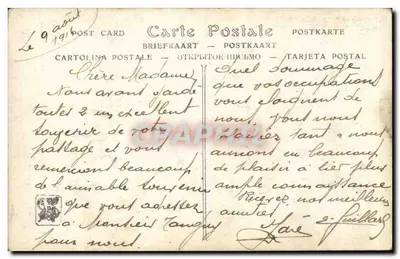 Le 9 août
191
POST CARD Carte Postale POSTKARTE
BRIEFKAART - POSTKAART
CARTOLINA POSTALE - ОТКРЫТОЕ ПИСЬМО - TARJETA POSTAL
Chère Madame
Nous avons gardé
toutes 2 un excellent
souvenir de votre
passage et vous
remercions beaucoup
de l'aimable souvenir
que vous adressez
à Monsieur Tanguy
pour nous.
Quel dommage
que vos occupations
vous éloignent de
nous. Vous nous
plaisiez tant & nous
aurions eu beaucoup
de plaisir à lier plus
ample connaissance
nos meilleures
amitiés